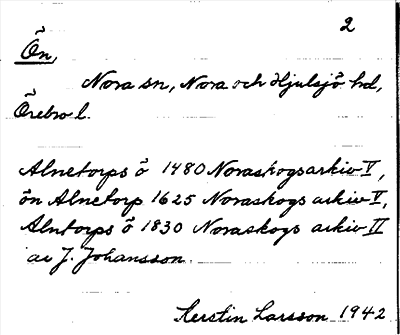 2
Ön,
Nora sn, Nora och Hjulsjö hd,
Örebro l.
Alnetorps ö 1480 Noraskogsarkiv V,
ön Alnetorp 1625 Noraskogs arkiv V,
Alntorps ö 1830 Noraskogs arkiv II
av J. Johansson.
Kerstin Larsson 1942